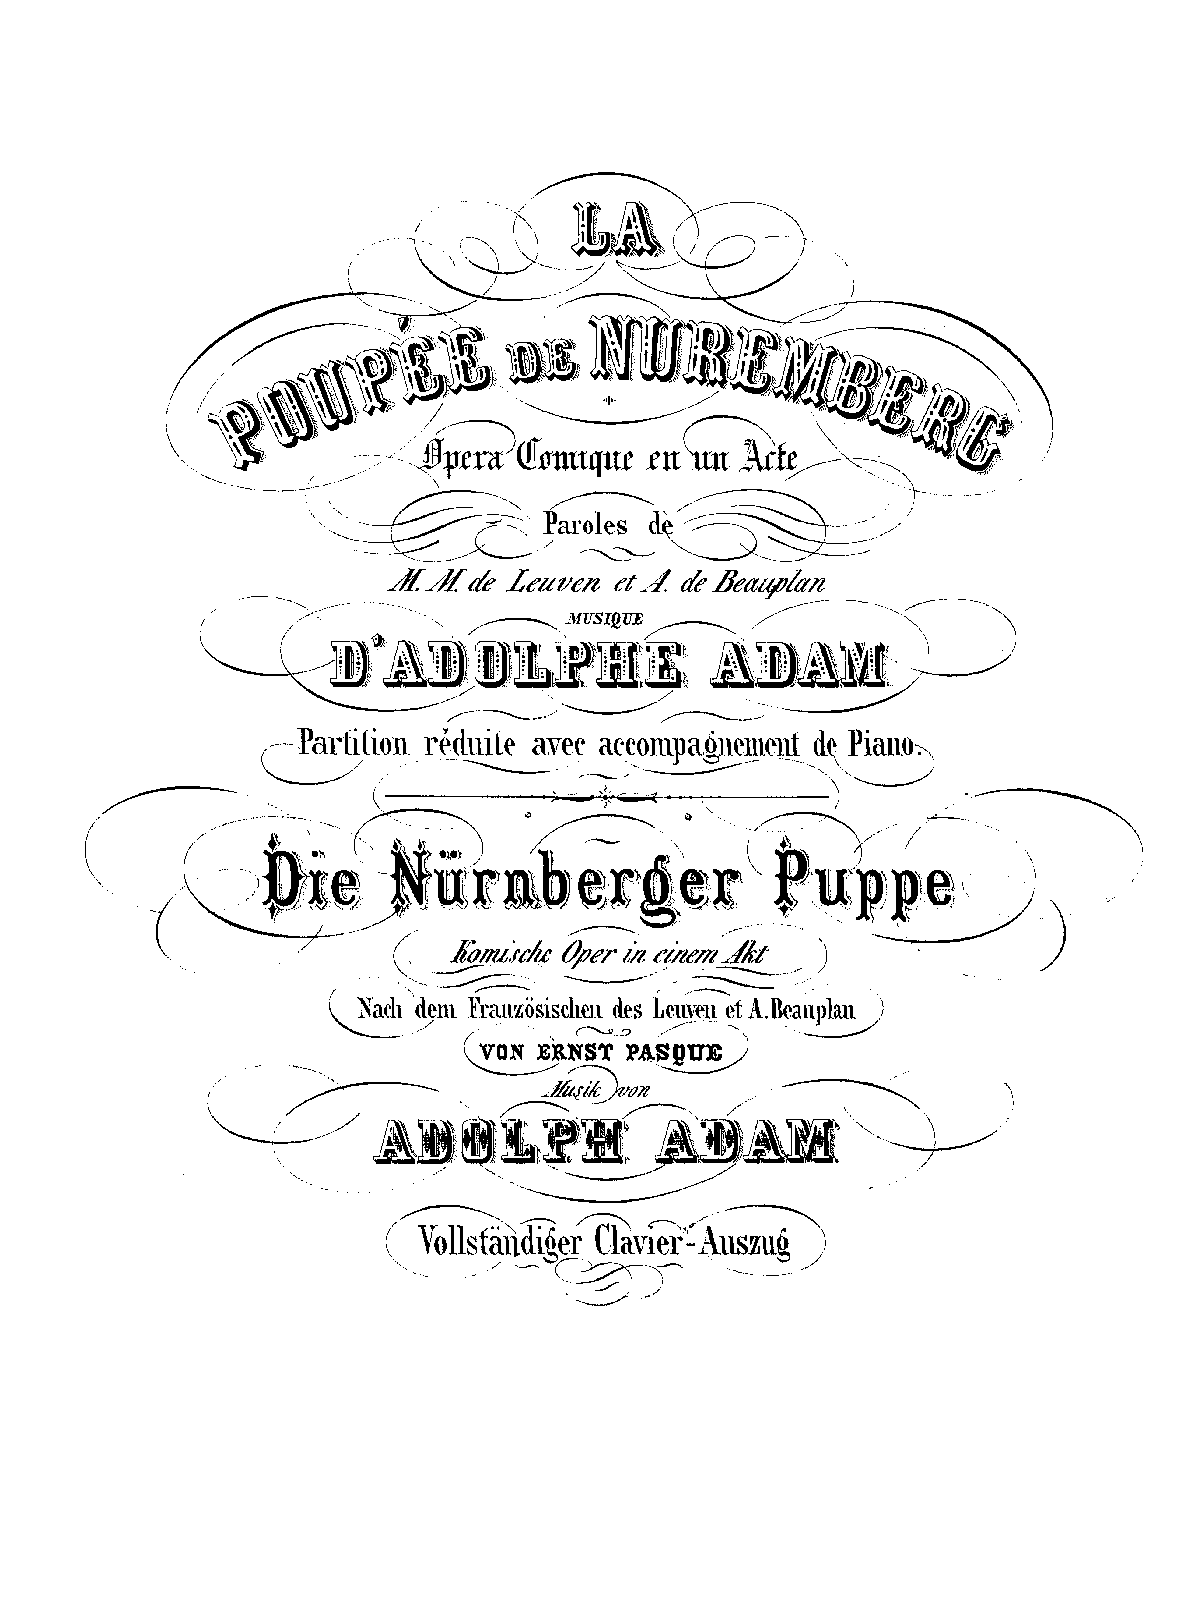 LA
POUPÉE DE NUREMBERG
Opera Comique en un Acte
Paroles de
M. M. de Leuven et A. de Beauplan
MUSIQUE
D'ADOLPHE ADAM
Partition réduite avec accompagnement de Piano.
Die Nürnberger Puppe
Komische Oper in einem Akt
Nach dem Französischen des Leuven et A. Beauplan
VON ERNST PASQUE
Musik von
ADOLPH ADAM
Vollständiger Clavier-Auszug